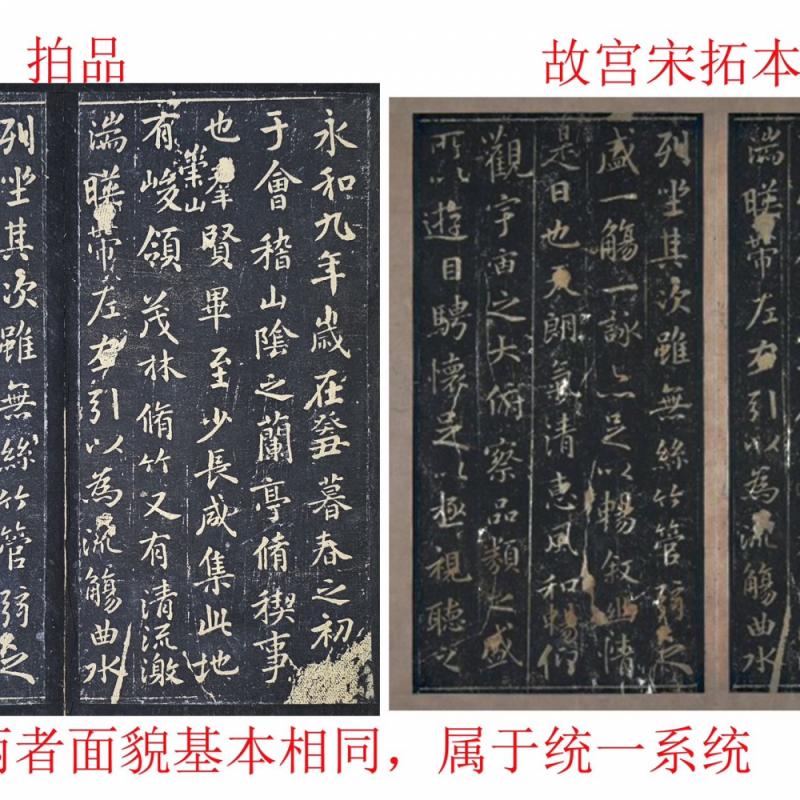 拍品
故宫宋拓本
永和九年歲在癸丑暮春之初
于會稽山陰之蘭亭脩稧事
也賢畢至少長咸集此地
崇山
有峻領茂林脩竹又有清流激
湍暎帶左右引以為流觴曲水
列坐其次雖無絲竹管弦之
湍暎帶左右引以為流觴曲水
列坐其次雖無絲竹管弦之
盛一觴一詠亦足以暢叙幽情
是日也天朗氣清惠風和暢仰
觀宇宙之大俯察品類之盛
所以遊目騁懷足以極視聽之
两者面貌基本相同，属于统一系统